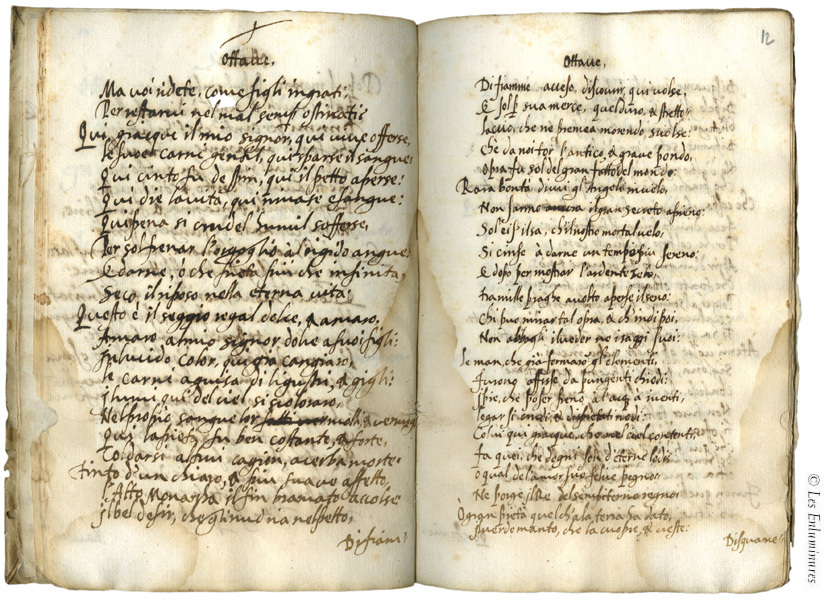 Ottave,
Ma voi ridete, come figli ingrati;
Per restarvi nel mal sempre ostinati?
Qui, giacque il mio signor, qui vive offerse,
Le sue carni gentil, qui sparse il sangue:
Qui cinto fu de spin, qui il petto aperse:
Qui die la vita, qui rimase esangue:
Qui pena si crudel humil sofferse,
Per sol frenar l'orgoglio al rigido angue
E darne, ò che pietà più che infinita,
Seco, il riposo nella eterna vita.
Questo è il seggio regal dolce, & amaro,
Amaro al mio signor dolce a suoi figli:
In livido color, qui già cangiaro,
Le carni a guisa di ligustri, & gigli:
I lumi, qui del ciel si scoloraro,
Nel proprio sangue lor
Qui la pietà fu ben costante, & forte,
Tinto d'un chiaro, & più suave affetto,
L'Alto Monarcha il fin bramato accolse
Il bel desir, che gli nudria nel petto,
Di fiam:
12
Ottave,
Di fiamme acceso, discovrir, qui volse;
E sol sua mercè, quel duro, & stretto
Laccio, che ne premea morendo sciolse:
Che da noi tor l'antico, & grave pondo,
Opra fu sol del gran fattor del mondo.
Rara bontà divi gl'Angeli muelo,
Non sanno il gran secreto apieno:
ch'il nostro mortal velo,
Si cinse à darne un tempo più sereno:
E dopo per mostrar l'ardente zelo,
tra mille piaghe a volto aperse il seno:
Chi può mirar tal opra, & chi di poi,
Non il veder ne raggi suoi:
Le man, che già formaro gl'elementi,
Furono affisse da pungenti chiodi:
I piè, che poser freno à l'acq, à i venti,
legar si
Colui qui giacque, che nel ciel contenti,
fa quei, che degni son d'eterne lodi:
O qual de l'amor suo felice pegno,
Ne porge, il Re del sempiterno regno.
O gran pietà quel ch'a la terra ha dato,
Il verde manto, che la cuopre, & veste:
Di squame:
© Les Enluminures